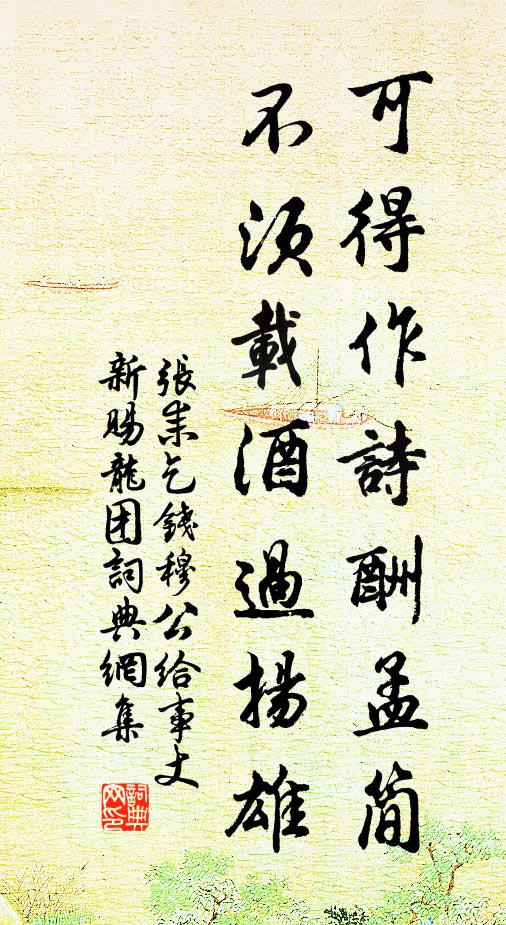 可得作詩酬孟簡
不須載酒過揚雄
張耒乞錢穆公給事丈
新賜龍团詞典網集
詞典网印